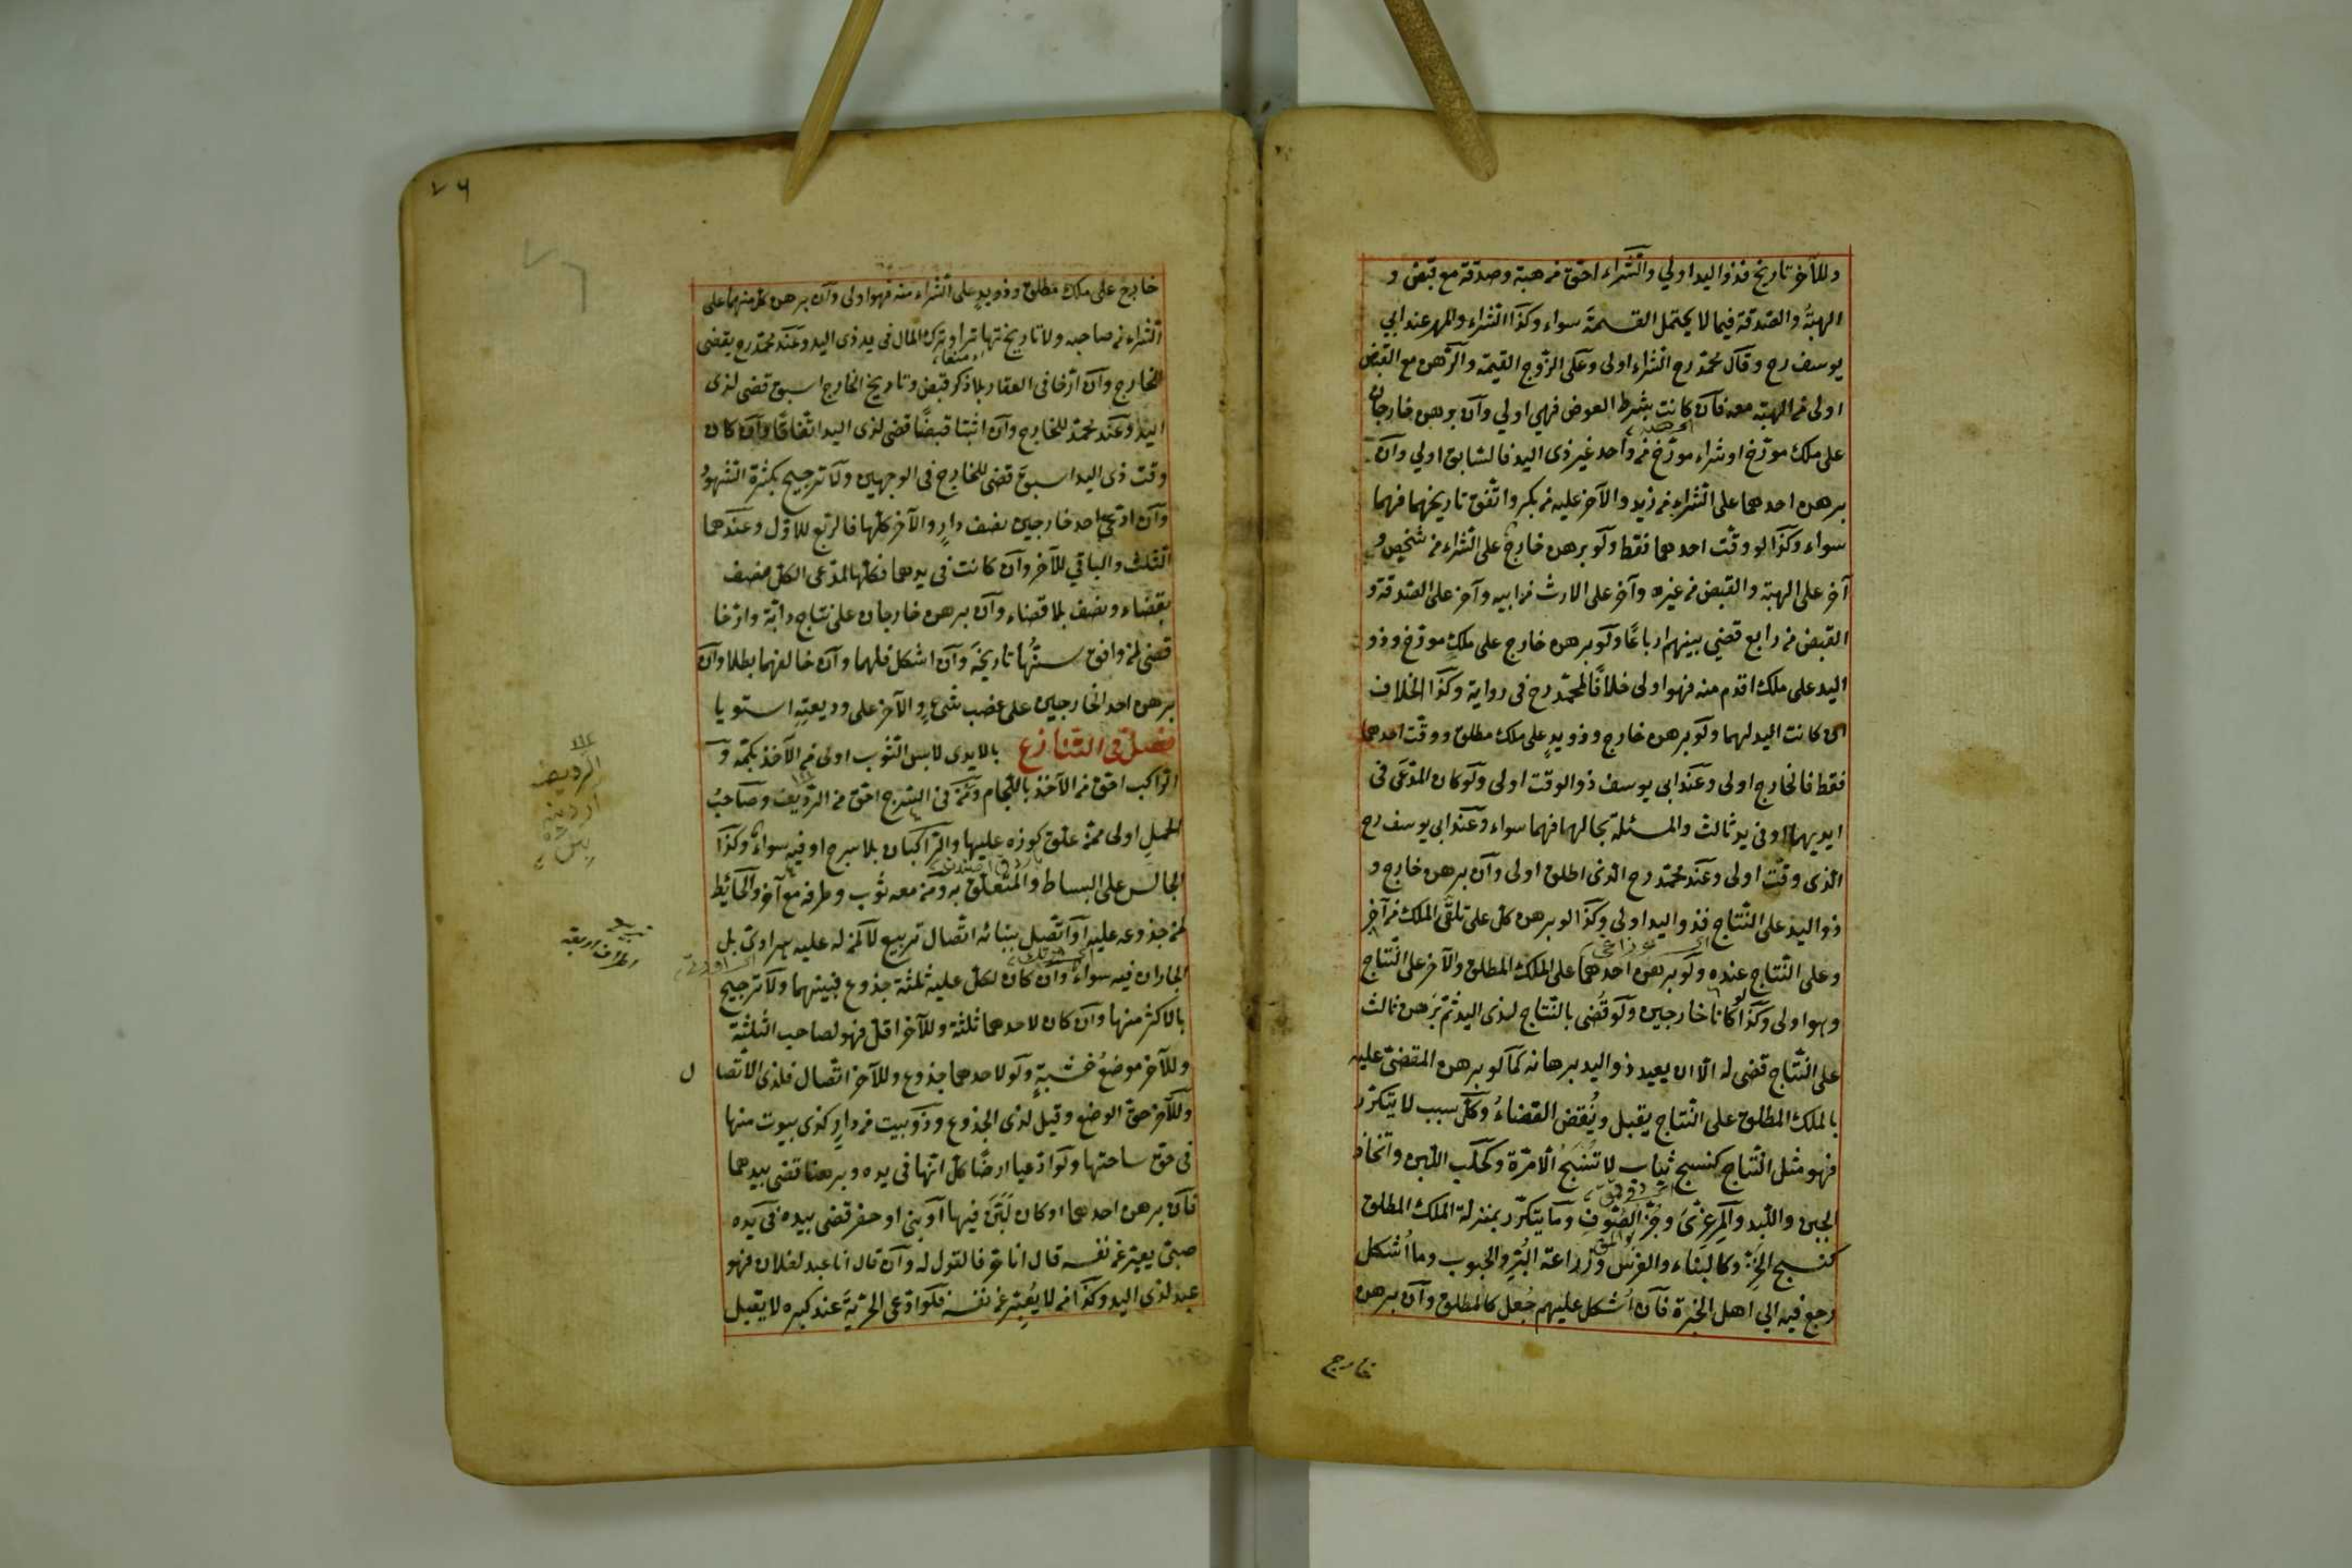 وللآخر تاريخ فذو اليد اولي والشراء احق من هبة وصدقة مع قبض و
الهبة والصدقة فيما لا يحتمل القسمة سواء وكذا الشراء والمهر عند ابي
يوسف رح وقال محمد رح الشراء اولى وعلى الزوج القيمة والرهن مع القبض
اولى من الهبة معه فان كانت بشرط العوض فهي اولي وان برهن خارجان
على ملك مورخ او شراء مورخ من واحد غير ذى اليد فالسابق اولي وان
برهن احدهما على الشراء من زيد والآخر عليه من بكر واتفق تاريخهما فهما
سواء وكذا لو وقت احدهما فقط ولو برهن خارج على الشراء من شخص و
آخر على الهبة والقبض من غيره وآخر على الارث من ابيه وآخر على الصدقة و
القبض من رابع قضي بينهم ارباعا ولو برهن خارج على ملك مورخ وذو
اليد على ملك اقدم منه فهو اولى خلافا لمحمد رح فى رواية وكذا الخلاف
ان كانت اليد لهما ولو برهن خارج وذو يد على ملك مطلق ووقت احدهما
فقط فالخارج اولى وعند ابى يوسف ذو الوقت اولى ولو كان المدعى فى
ايديهما او فى يد ثالث والمسئلة بحالها فهما سواء وعند ابى يوسف رح
الذى وقت اولى وعند محمد رح الذى اطلق اولى وان برهن خارج و
ذو اليد على النتاج فذو اليد اولى وكذا لو برهن كل على تلقى الملك من آخر
وعلى النتاج عنده ولو برهن احدهما على الملك المطلق والآخر على النتاج
فهو اولى وكذا لو كانا خارجين ولو قضى بالنتاج لذى اليد ثم برهن ثالث
على النتاج قضى له الا ان يعيد ذو اليد برهانه كما لو برهن المقضى عليه
بالملك المطلق على النتاج يقبل وينقض القضاء وكل سبب لا يتكرر
فهو مثل النتاج كنسج ثياب لا تنسج الا مرة وكحلب اللبن واتخاذ
الجبن واللبد والمرعزى وجز الصوف وما يتكرر بمنزلة الملك المطلق
كنسج الخز وكالبناء والغرس وزراعة البر والحبوب وما اشكل
رجع فيه الي اهل الخبرة فان اشكل عليهم جعل كالمطلق وان برهن
خارج
٧٦
خارج على ملك مطلق وذو يد على الشراء منه فهو اولى وان برهن كل منهما على
الشراء من صاحبه ولا تاريخ تهاترا وترك المال فى يد ذى اليد وعند محمد رح يقضى
للخارج وان ارخا فى العقار بلا ذكر قبض وتاريخ الخارج اسبق قضى لذى
اليد وعند محمد للخارج وان اثبتا قبضا قضى لذى اليد اتفاقا وان كان
وقت ذى اليد اسبق قضى للخارج فى الوجهين ولا ترجيح بكثرة الشهود
وان ادعى احد خارجين نصف دار والآخر كلها فالربع للاول وعندهما
الثلث والباقي للآخر وان كانت فى يدهما فكلها لمدعى الكل نصف
بقضاء ونصف بلا قضاء وان برهن خارجان على نتاج دابة وارخا
قضى لمن وافق سنها تاريخه وان اشكل فلهما وان خالفهما بطلا وان
برهن احد الخارجين على غصب شئ والآخر على وديعته استويا
فصل فى التنازع بالايدى لابس الثوب اولى من الآخذ بكمه و
الراكب احق من الآخذ باللجام ومن فى السرج احق من الرديف وصاحب
الحمل اولى ممن علق كوزه عليها والراكبان بلا سرج او فيه سواء وكذا
الجالس على البساط والمتعلق به ومن معه ثوب وطرفه مع آخر والحائط
لمن جذوعه عليه او اتصل ببنائه اتصال تربيع لا لمن له عليه هرادى بل
الجاران فيه سواء وان كان لكل عليه ثلثة جذوع فبينهما ولا ترجيح
بالاكثر منها وان كان لاحدهما ثلثة وللآخر اقل فهو لصاحب الثلثة
وللآخر موضع خشبة ولو لاحدهما جذوع وللآخر اتصال فلذى الاتصا ل
وللآخر حق الوضع وقيل لذى الجذوع وذو بيت من دار كذى بيوت منها
فى حق ساحتها ولو ادعيا ارضا كل انها فى يده وبرهنا قضى بيدهما
فان برهن احدهما او كان لبن فيها او بنى او حفر قضى بيده فى يده
صبى يعبر عن نفسه قال انا حر فالقول له وان قال انا عبد لفلان فهو
عبد لذى اليد وكذا من لا يعبر عن نفسه فلو ادعى الحرية عند كبره لا يقبل